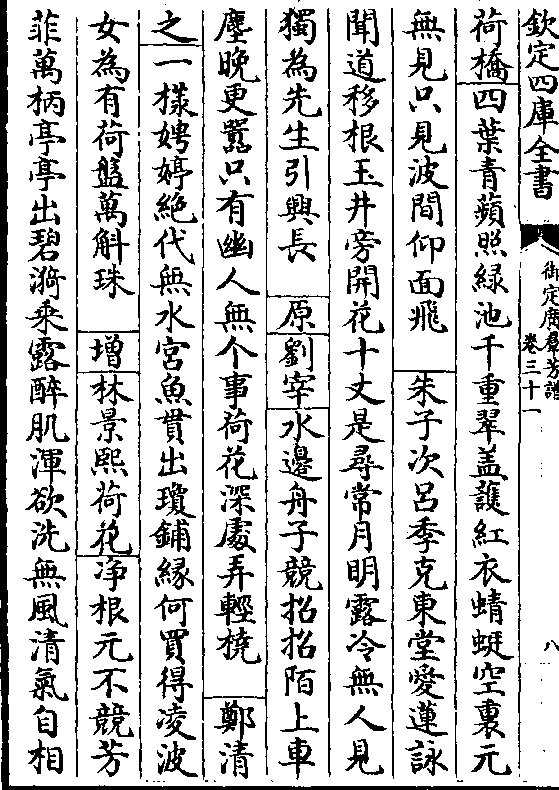 欽定四庫全書
御定廣羣芳譜
卷三十一
八
荷橋四葉青蘋照緑池千重翠盖護紅衣蜻蜓空裏元
無見只見波間仰面飛　朱子次呂季克東堂愛蓮詠
聞道移根玉井旁開花十丈是尋常月明露冷無人見
獨為先生引興長　原劉宰水邊舟子競招招陌上車
塵晚更囂只有幽人無个事荷花深處弄輕橈　鄭清
之一樣娉婷絶代無水宮魚貫出瓊鋪縁何買得凌波
女為有荷盤萬斛珠　増林景熙荷花净根元不競芳
菲萬柄亭亭出碧漪乘露醉肌渾欲洗無風清氣自相